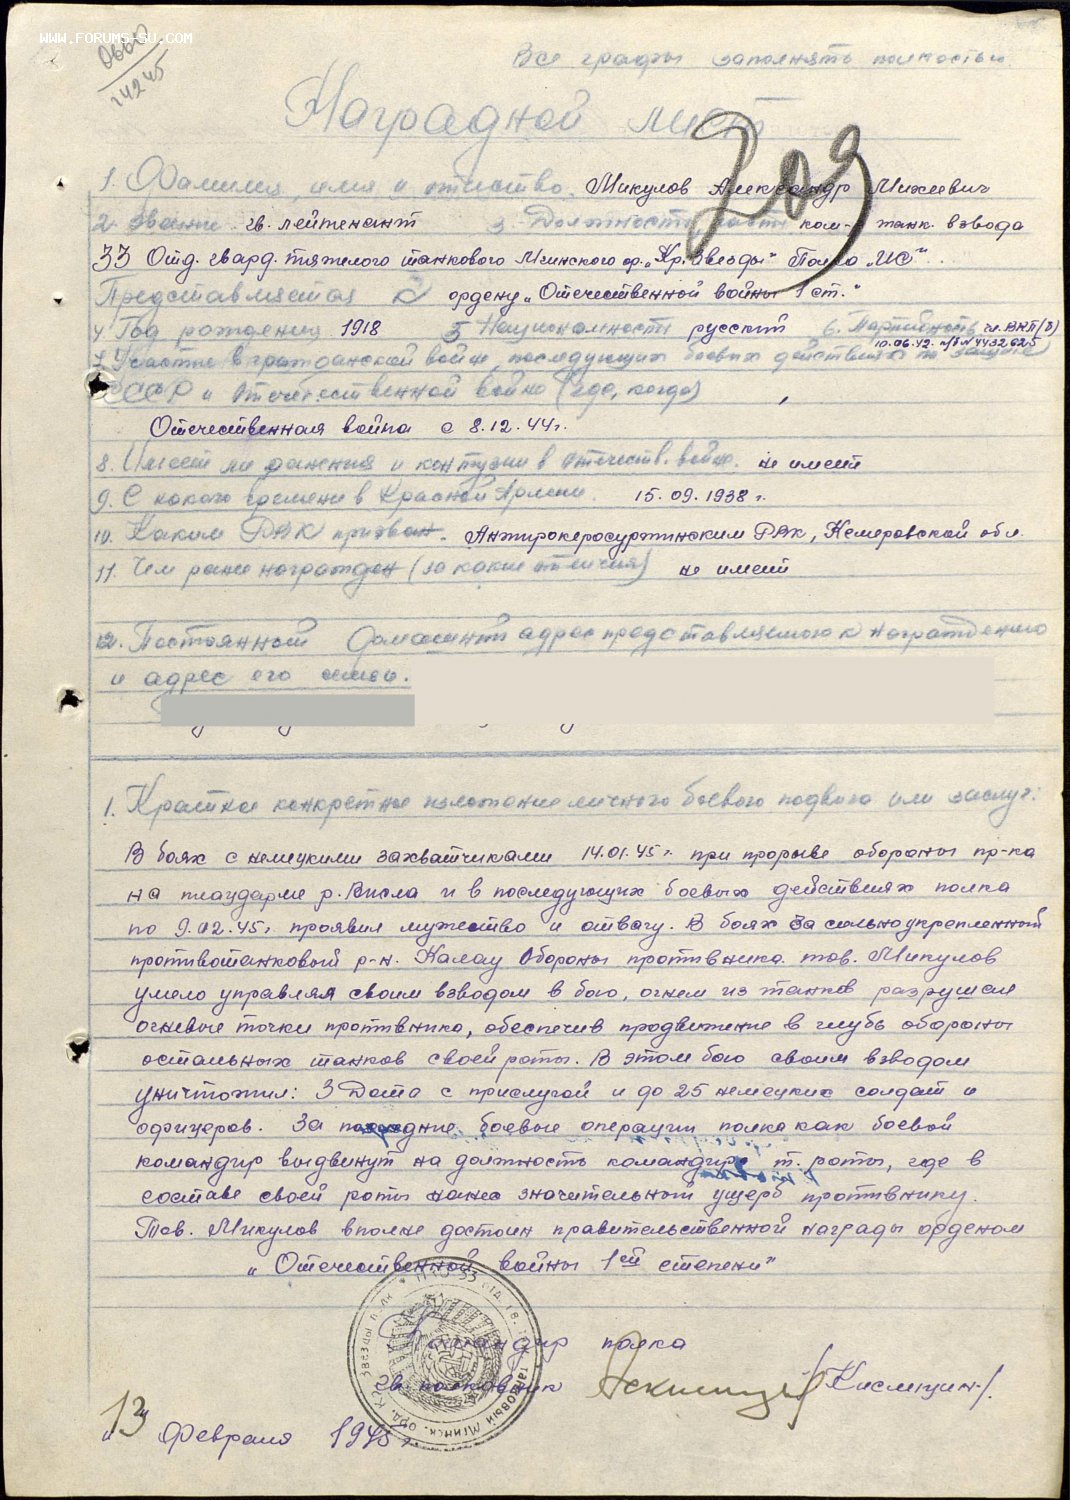 WWW.FORUMS-SU.COM
Все графы заполнять полностью
Наградной лист
209
1. Фамилия, имя и отчество. Микулов Александр Михеевич
2. Звание гв. лейтенант 3. Должность часть ком. танк. взвода
33 Отд. гвард. тяжелого танкового Мгинского ор. „Кр. Звезды" Полка „ИС".
Представляется к ордену „Отечественной войны 1 ст."
4 Год рождения 1918 5 Национальность русский 6. Партийность чл. ВКП(б)
10.06.42. п/б N 4432625
7 Участие в гражданской войне, последующих боевых действиях по защите
СССР и Отечественной войне (где, когда)
Отечественная война с 8.12.44г.
8. Имеет ли ранения и контузии в отечеств. войне. не имеет
9. С какого времени в Красной Армии. 15.09.1938 г.
10. Каким РВК призван. РВК, Кемеровской обл.
11. Чем ранее награжден (за какие отличия) не имеет
12. Постоянный домашний адрес представляемого к награждению
и адрес его семьи.
1. Краткое конкретное изложение личного боевого подвига или заслуг:
В боях с немецкими захватчиками 14.01.45г. при прорыве обороны пр-ка
на плацдарме р. Висла и в последующих боевых действиях полка
по 9.02.45г проявил мужество и отвагу. В боях за сильноукрепленный
противотанковый р-н. Калау обороны противника тов. Микулов
умело управляя своим взводом в бою, огнем из танков разрушал
огневые точки противника, обеспечив продвижение в глубь обороны
остальных танков своей роты. В этом бою своим взводом
уничтожил: 3 Дота с прислугой и до 25 немецких солдат и
офицеров. За боевые операции полка как боевой
командир выдвинут на должность командира т. роты, где в
составе своей роты нанес значительный ущерб противнику.
Тов. Микулов вполне достоин правительственной награды орденом
„Отечественной войны 1ой степени"
Командир полка
гв. полковник /Кислицин/.
„13" Февраля 1945 г.